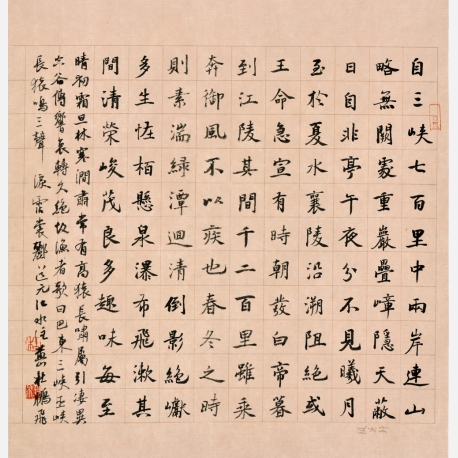 自三峽七百里中兩岸連山
略無闕處重巖疊嶂隱天蔽
日自非亭午夜分不見曦月
至於夏水襄陵沿溯阻絕或
王命急宣有時朝發白帝暮
到江陵其間千二百里雖乘
奔御風不以疾也春冬之時
則素湍綠潭迴清倒影絕巘
多生怪柏懸泉瀑布飛漱其
間清榮峻茂良多趣味每至
晴初霜旦林寒澗肅常有高猿長嘯屬引淒異
空谷傳響哀轉久絕故漁者歌曰巴東三峽巫峽
長猿鳴三聲淚霑裳酈道元江水注杜鵬飛